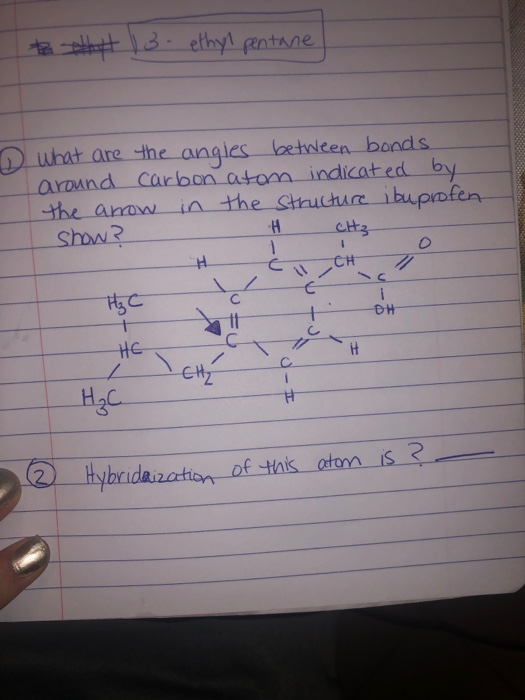 3- ethyl pentane
① what are the angles between bonds
around carbon atom indicated by
the arrow in the structure ibuprofen
show?
H CH3
H C CH O
H3C C C C
OH
HC C C H
CH2 C
H3C H
② Hybridaization of this atom is ?